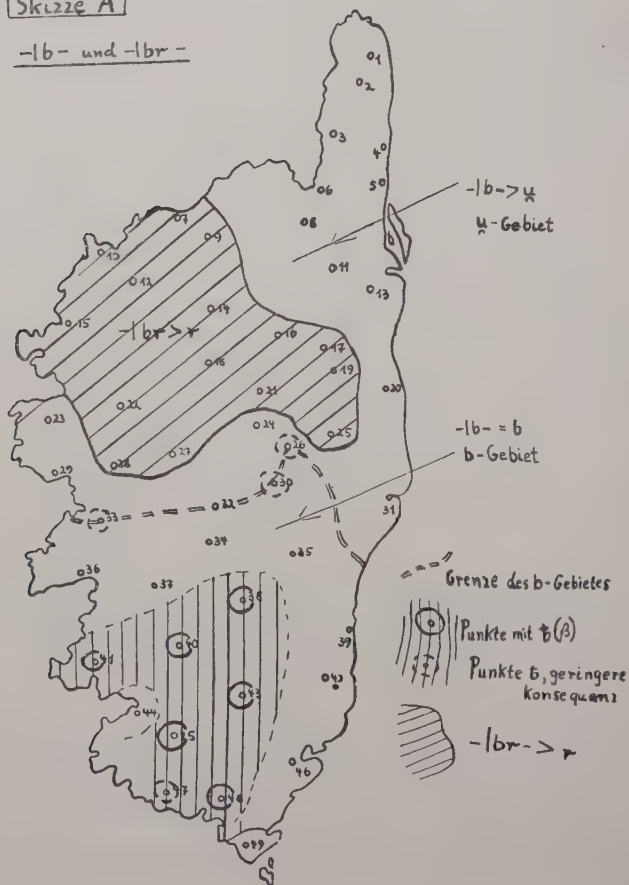 Skizze A
-lb- und -lbr-
1
2
3
4
5
6
7
8
9
10
11
12
13
14
15
-lbr > r
16
17
18
19
20
21
22
23
24
25
26
27
28
29
30
31
32
33
34
35
36
37
38
39
40
41
43
44
46
49
-lb- > u̯
u̯-Gebiet
-lb- = b
b-Gebiet
Grenze des b-Gebietes
Punkte mit ƀ(β)
Punkte ƀ, geringere
konsequenz
-lbr- > r